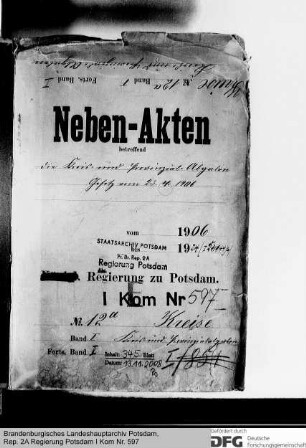 Neben-Akten
betreffend
die Kreis- und Provinzial-Abgaben
Gesetz vom 23. 4. 1906
vom 1906
STAATSARCHIV POTSDAM
Pr. Br. Rep. 2A
Regierung Potsdam
Regierung zu Potsdam.
I Kom Nr 597
№ 12a Kreise
Band I Kreis- und Provinzialabgaben
Forts. Band I
Inhalt: 345 Blatt
Datum: 13.11.2008
Brandenburgisches Landeshauptarchiv Potsdam,
Rep. 2A Regierung Potsdam I Kom Nr. 597
Gefördert durch
DFG Deutsche
Forschungsgemeinschaft